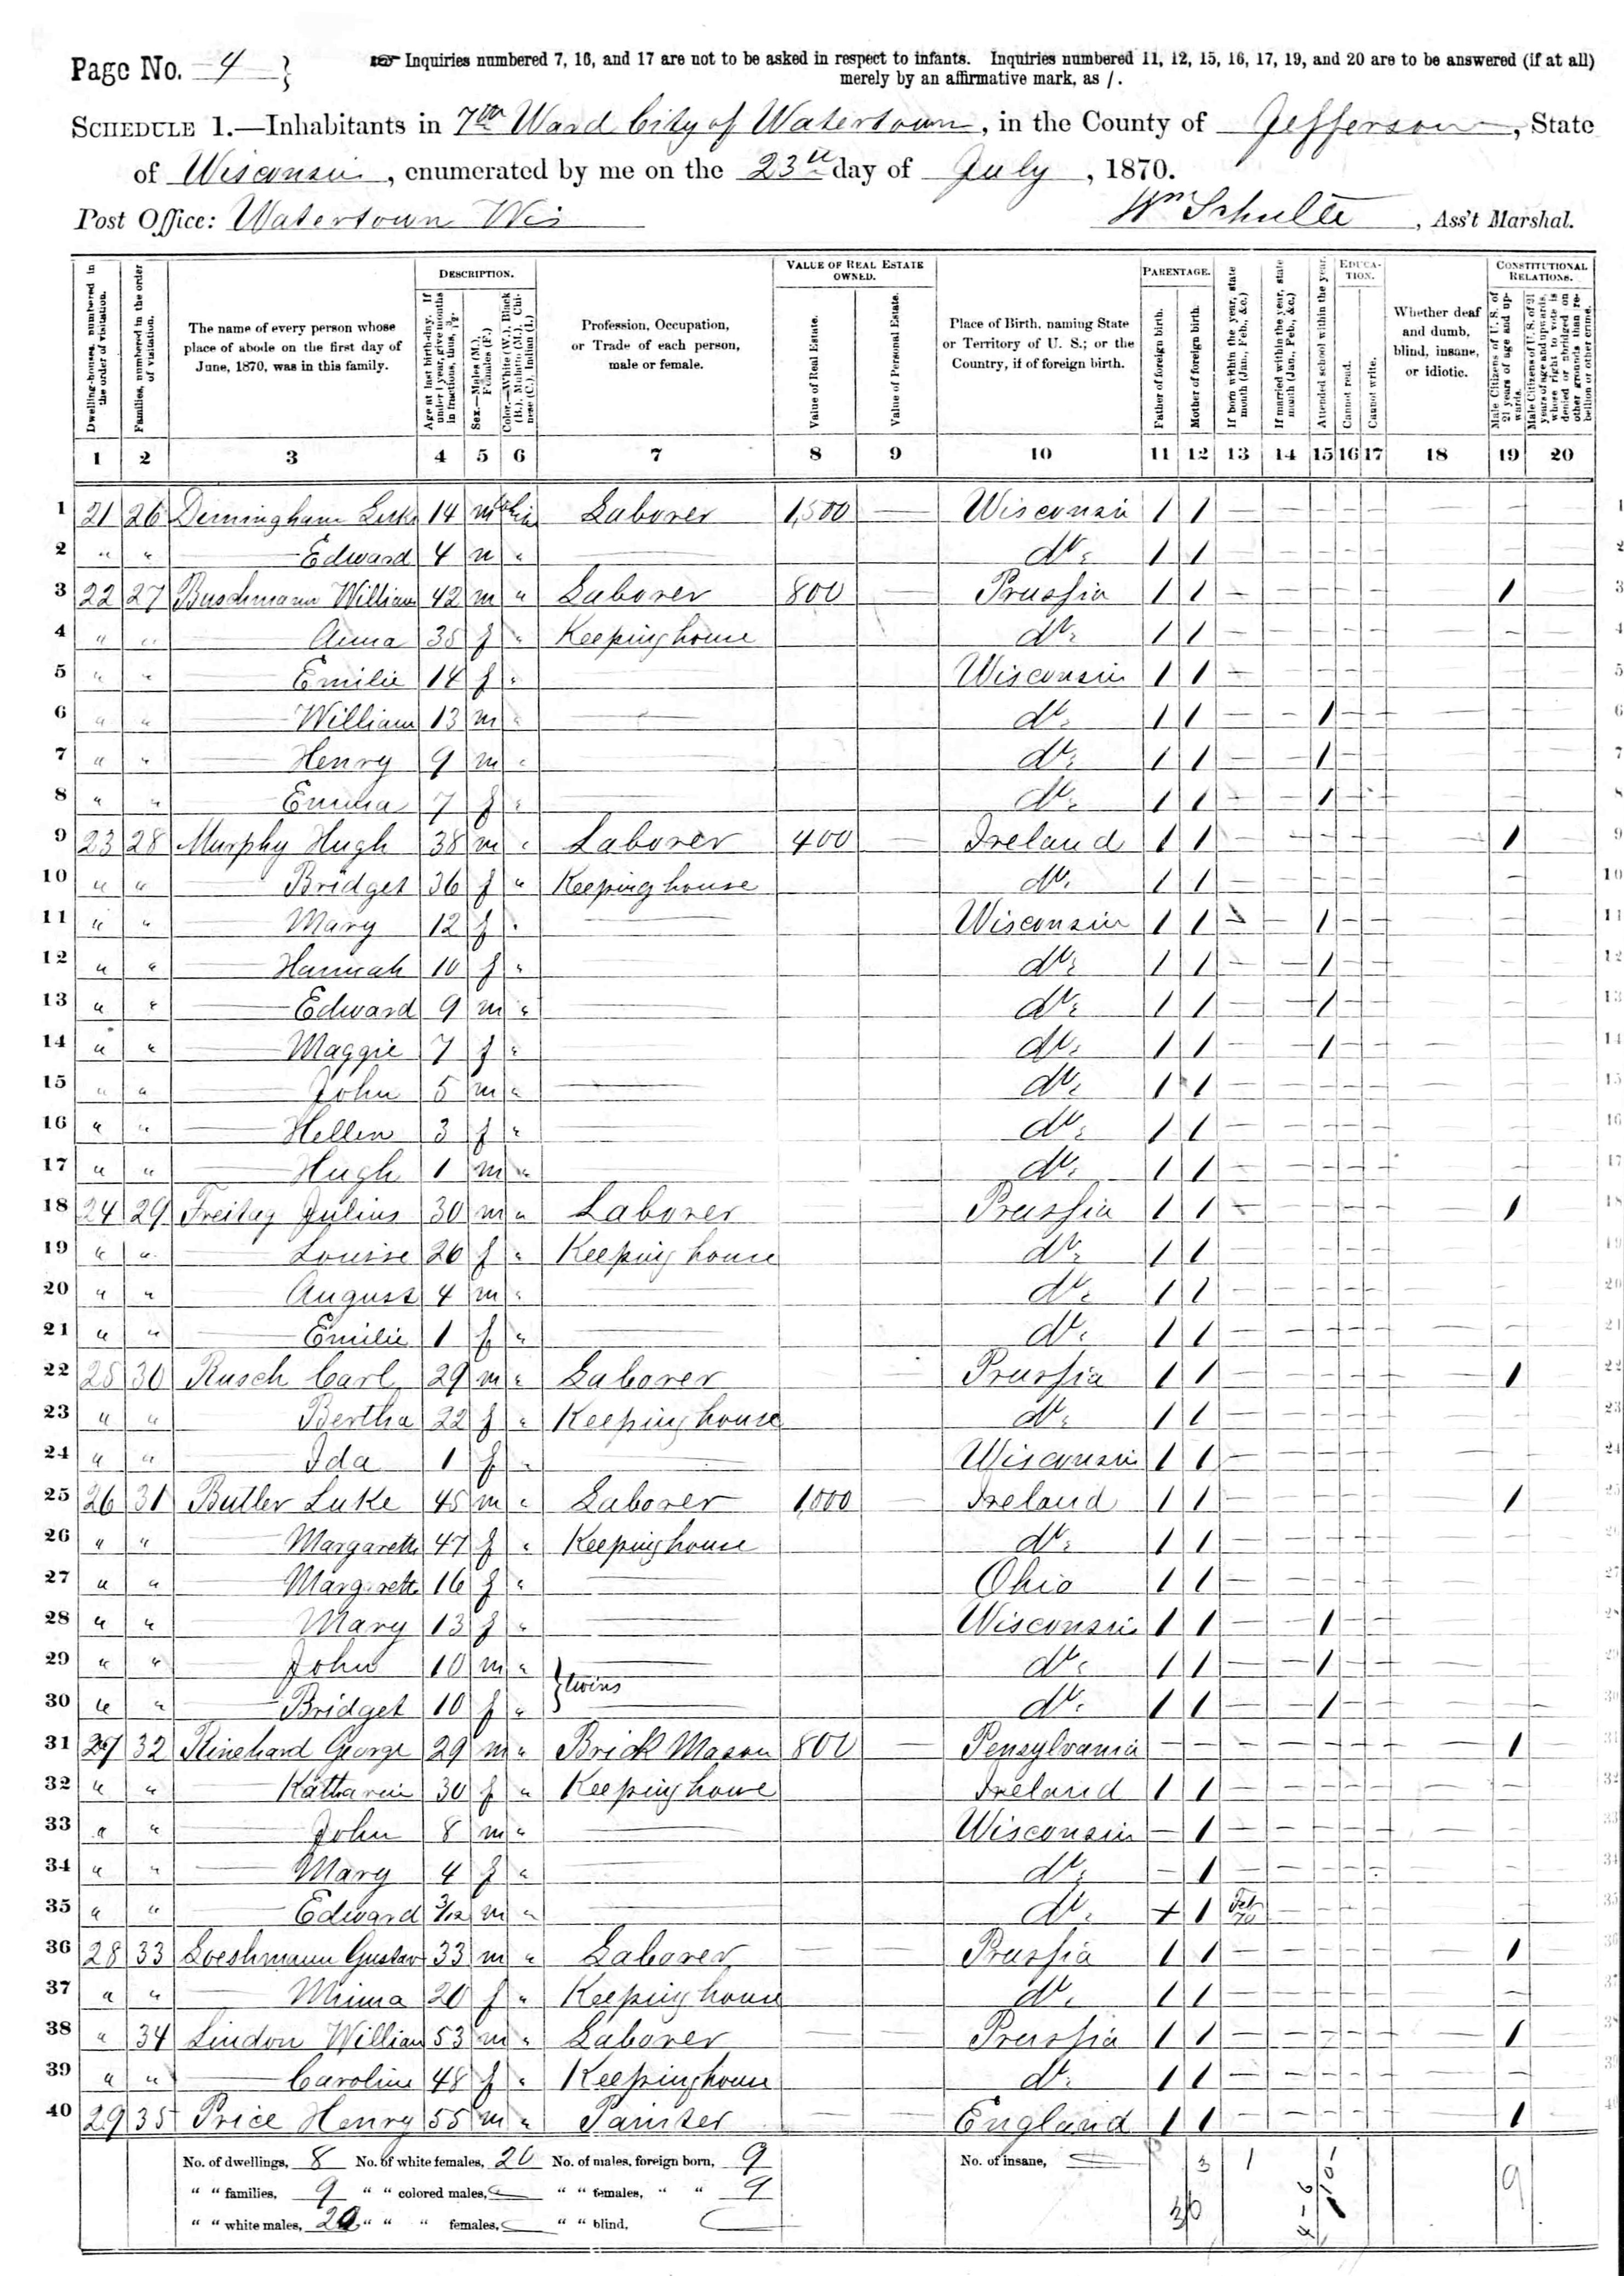 Page No. 4 }
Inquiries numbered 7, 16, and 17 are not to be asked in respect to infants. Inquiries numbered 11, 12, 15, 16, 17, 19, and 20 are to be answered (if at all)
merely by an affirmative mark, as /.
SCHEDULE 1.—Inhabitants in 7th Ward City of Watertown, in the County of Jefferson, State
of Wisconsin, enumerated by me on the 23d day of July, 1870.
Post Office: Watertown Wis
Wm Schulte, Ass't Marshal.
Dwelling-houses, numbered in the order of visitation.
Families, numbered in the order of visitation.
The name of every person whose place of abode on the first day of June, 1870, was in this family.
DESCRIPTION.
Age at last birth-day. If under 1 year, give months in fractions, thus, 3/12.
Sex.—Males (M.), Females (F.)
Color.—White (W.), Black (B.), Mulatto (M.), Chinese (C.), Indian (I.)
Profession, Occupation, or Trade of each person, male or female.
VALUE OF REAL ESTATE OWNED.
Value of Real Estate.
Value of Personal Estate.
Place of Birth, naming State or Territory of U. S.; or the Country, if of foreign birth.
PARENTAGE.
Father of foreign birth.
Mother of foreign birth.
If born within the year, state month (Jan., Feb., &c.)
If married within the year, state month (Jan., Feb., &c.)
Attended school within the year.
EDUCATION.
Cannot read.
Cannot write.
Whether deaf and dumb, blind, insane, or idiotic.
CONSTITUTIONAL RELATIONS.
Male Citizens of U. S. of 21 years of age and upwards.
Male Citizens of U. S. of 21 years of age and upwards, whose right to vote is denied or abridged on other grounds than rebellion or other crime.
1 2 3 4 5 6 7 8 9 10 11 12 13 14 15 16 17 18 19 20
1 21 26 Demingham Luke 14 m Laborer 1,500 — Wisconsin 1 1 1
2 " " — Edward 4 m " — do. 1 1 2
3 22 27 Buschmann William 42 m " Laborer 800 — Prussia 1 1 1 3
4 " " — Anna 38 f " Keeping house do. 1 1 4
5 " " — Emilie 14 f " — Wisconsin 1 1 5
6 " " — William 13 m " — do. 1 1 1 6
7 " " — Henry 9 m " — do. 1 1 1 7
8 " " — Emma 7 f " — do. 1 1 1 8
9 23 28 Murphy Hugh 38 m " Laborer 400 — Ireland 1 1 1 9
10 " " — Bridget 36 f " Keeping house do. 1 1 10
11 " " — Mary 12 f " — Wisconsin 1 1 1 11
12 " " — Hannah 10 f " — do. 1 1 1 12
13 " " — Edward 9 m " — do. 1 1 1 13
14 " " — Maggie 7 f " — do. 1 1 1 14
15 " " — John 5 m " — do. 1 1 15
16 " " — Hellen 3 f " — do. 1 1 16
17 " " — Hugh 1 m " — do. 1 1 17
18 24 29 Freitag Julius 30 m " Laborer Prussia 1 1 1 18
19 " " — Louise 26 f " Keeping house do. 1 1 19
20 " " — August 4 m " — do. 1 1 20
21 " " — Emilie 1 f " — do. 1 1 21
22 25 30 Rusch Carl 29 m " Laborer Prussia 1 1 1 22
23 " " — Bertha 22 f " Keeping house do. 1 1 23
24 " " — Ida 1 f " — Wisconsin 1 1 24
25 26 31 Butler Luke 45 m " Laborer 1,000 — Ireland 1 1 1 25
26 " " — Margareth 47 f " Keeping house do. 1 1
27 " " — Margareth 16 f " — Ohio 1 1 27
28 " " — Mary 13 f " — Wisconsin 1 1 1
29 " " — John 10 m " } twins do. 1 1 1
30 " " — Bridget 10 f " do. 1 1 1 30
31 27 32 Rinehard George 29 m " Brick Mason 800 — Pensylvania — — 1
32 " " — Katharin 30 f " Keeping house Ireland 1 1 32
33 " " — John 8 m " — Wisconsin — 1 33
34 " " — Mary 4 f " — do. — 1 34
35 " " — Edward 3/12 m " — do. + 1 Feb 70
36 28 33 Loeshmann Gustav 33 m " Laborer — — Prussia 1 1 1
37 " " — Minna 20 f " Keeping house do. 1 1
38 " 34 Lindon William 53 m " Laborer — — Prussia 1 1 1
39 " " — Caroline 48 f " Keeping house do. 1 1
40 29 35 Price Henry 55 m " Painter — — England 1 1 1 40
No. of dwellings, 8 No. of white females, 20 No. of males, foreign born, 9 No. of insane, — 3 1
" " families, 9 " " colored males, — " " females, " " 9
" " white males, 20 " " " females, — " " blind, — 36 9